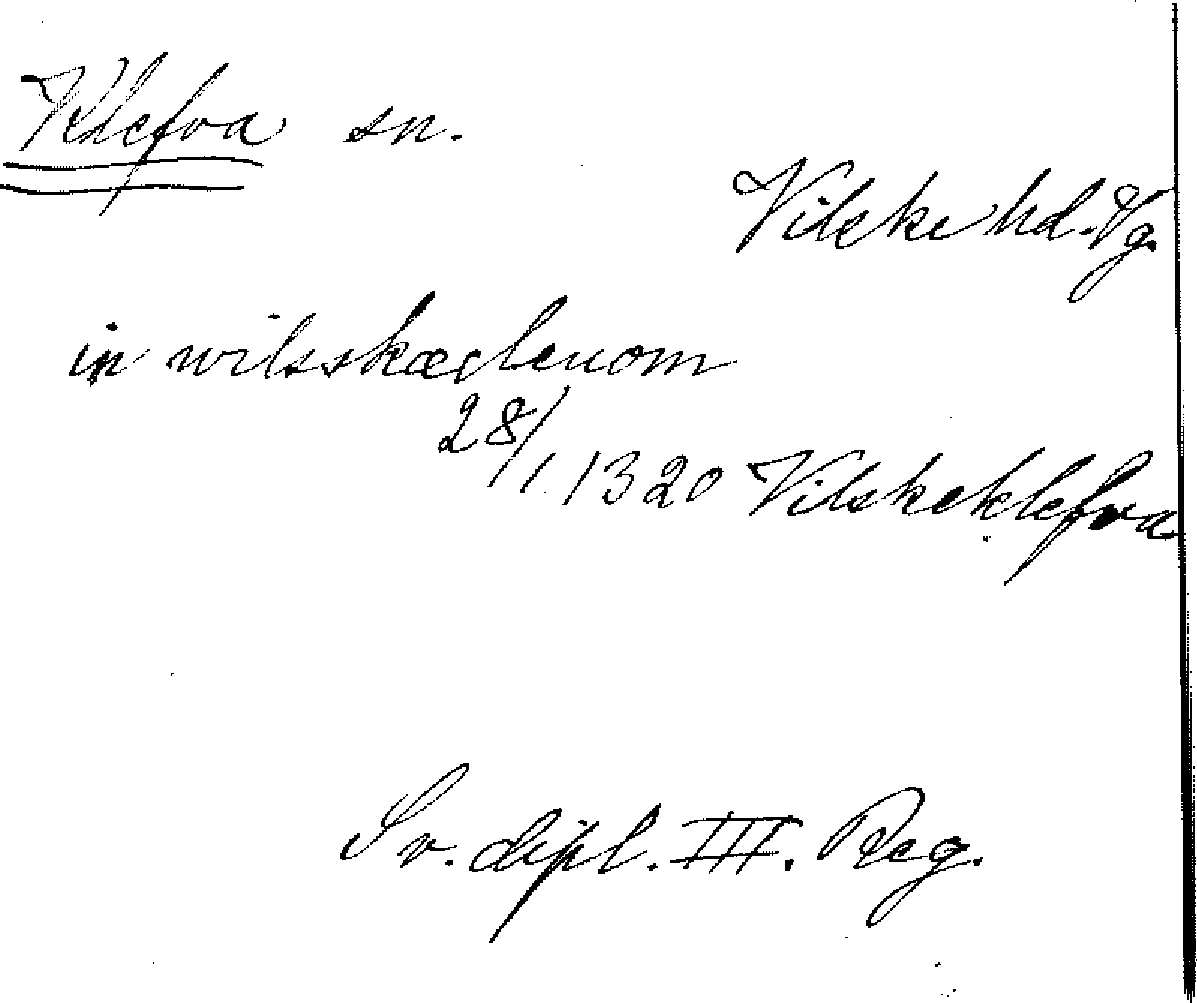 Klefva sn.
Vilske hd. Vg.
in wilsskæclenom
28/1 1320 Vilskeklefva
Sv. dipl. III. Reg.